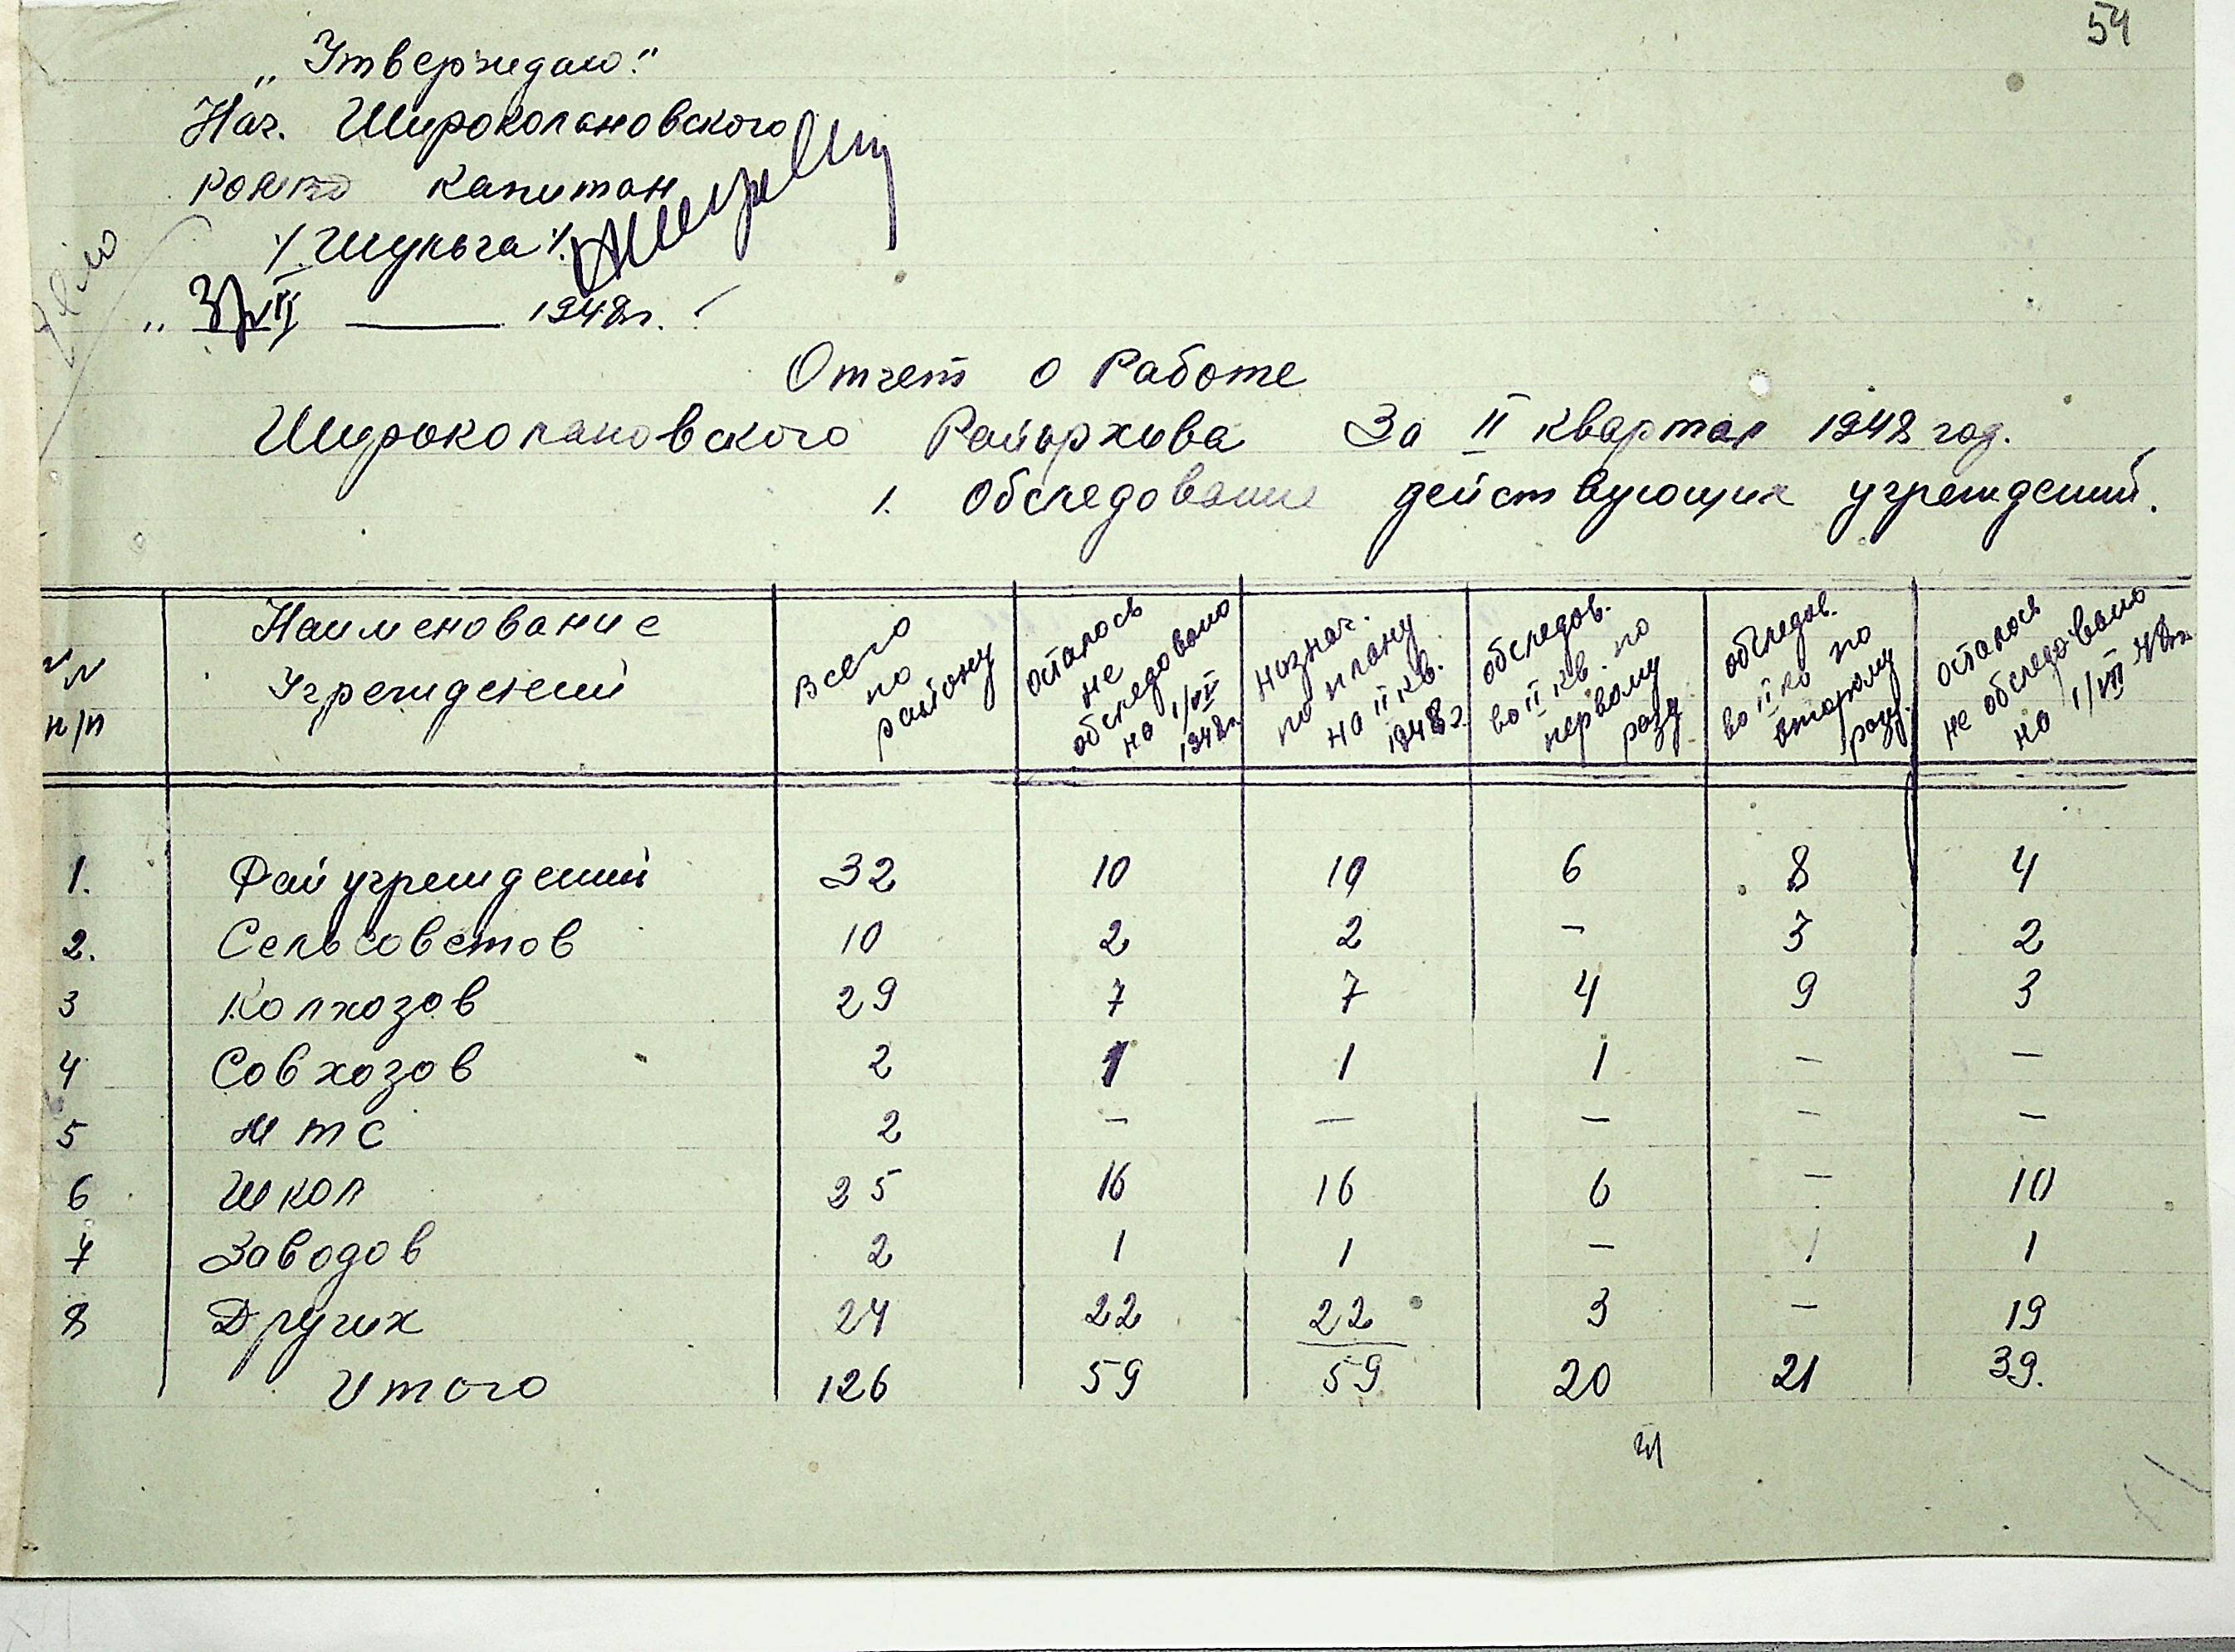 54
„Утверждаю."
Нач. Широколановского
РОМВД капитан
/.Шульга./
" 1948г.
Дело
Отчет о Работе
Широколановского Райархива За II квартал 1948 год.
1. Обследование действующих учреждений.
№№ п/п | Наименование Учреждений | Всего по району | осталось не обследовано на 1/IV 1948г. | назнач. по плану на II кв. 1948г. | обследов. во II кв. по первому разу | обследов. во II кв по второму разу. | осталось не обследовано на 1/VII 48г.
1. Райучреждений 32 10 10 6 8 4
2. Сельсоветов 10 2 2 – 3 2
3 Колхозов 29 7 7 4 9 3
4 Совхозов 2 1 1 1 – –
5 МТС 2 – – – – –
6 Школ 25 16 16 6 – 10
7 Заводов 2 1 1 – 1 1
8 Других 24 22 22 3 – 19
Итого 126 59 59 20 21 39.